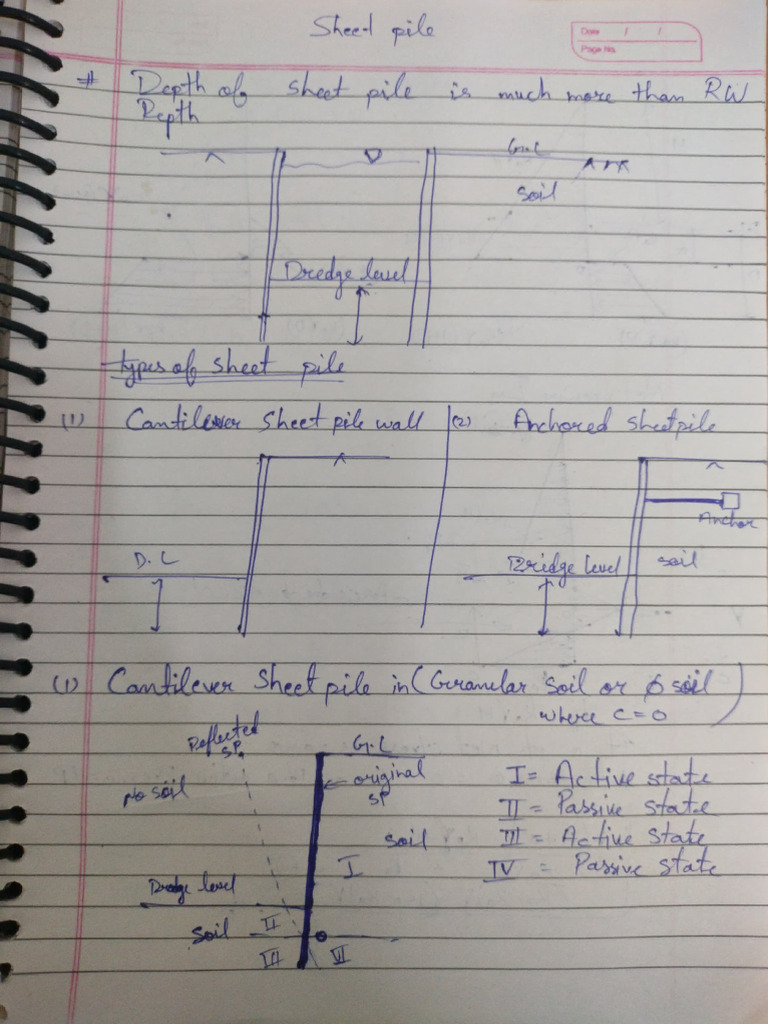 Sheet pile
Date / /
Page No.
# Depth of sheet pile is much more than RW
Depth
G.L
soil
Dredge level
types of sheet pile
(1) Cantilever Sheet pile wall
(2) Anchored sheetpile
Anchor
D.L
Dridge level
soil
(1) Cantilever Sheet pile in (Granular soil or ϕ soil
where C=0)
Deflected
SP.
G.L
original
SP
No soil
soil
I
I = Active state
II = Passive state
III = Active state
IV = Passive state
Dredge level
soil
II
III
VI